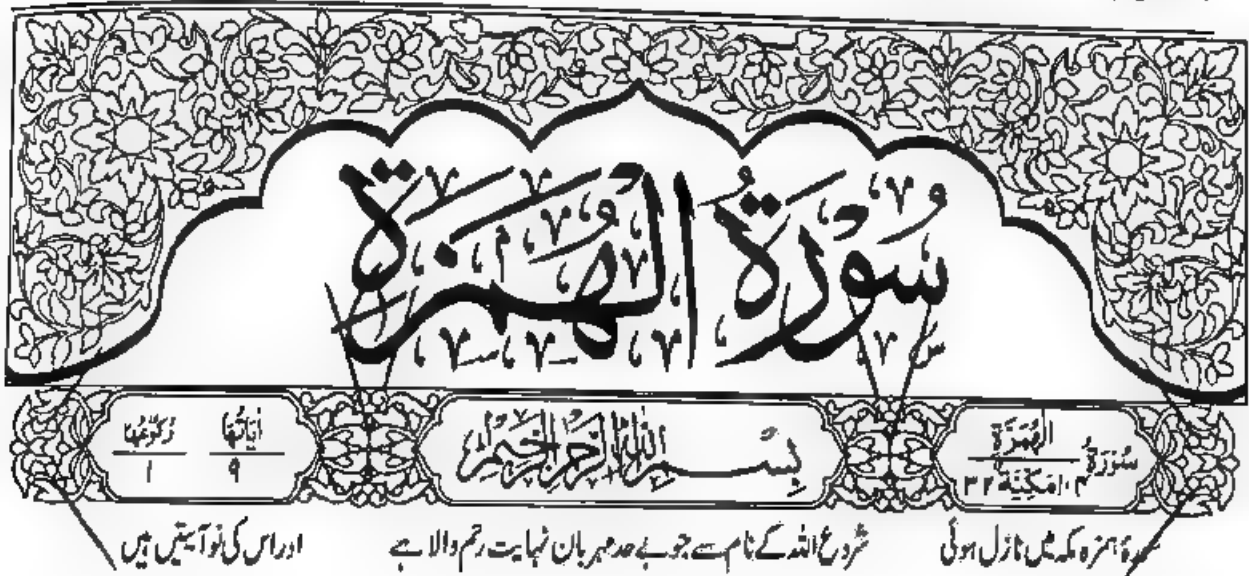 سُوْرَةُ الْهُمَزَةِ
سُوْرَةُ الْهُمَزَةِ مَكِّيَّةٌ ٣٢ بِسْمِ اللهِ الرَّحْمٰنِ الرَّحِيْمِ اٰيَاتُهَا ٩ رُكُوْعُهَا ١
سورۂ ہمزہ مکہ میں نازل ہوئی شروع اللہ کے نام سے جو بے حد مہربان نہایت رحم والا ہے اور اس کی نو آیتیں ہیں